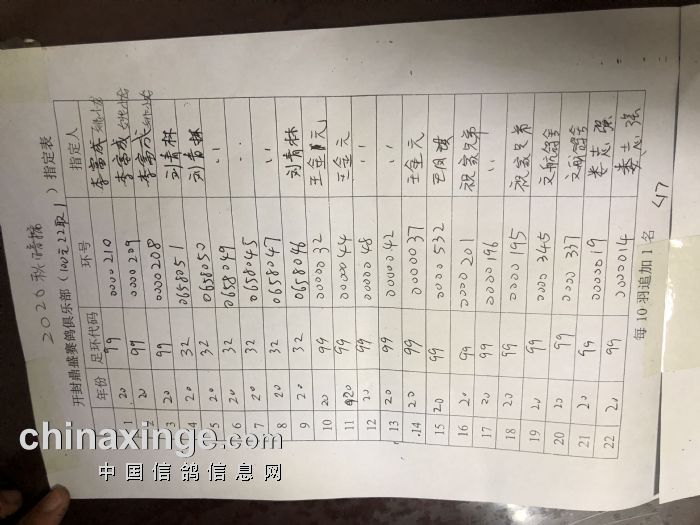 2020秋暗插
开封鼎盛赛鸽俱乐部(100元22取1)指定表
年份 足环代码 环号 指定人
1 20 99 0000210 李富成
2 20 99 0000209 李富成
3 20 99 0000208 李富成
4 20 32 0658051 刘青林
5 20 32 0658050 刘青林
6 20 32 0658049 〃
7 20 32 0658045
8 20 32 0658047 〃
9 20 32 0658046 刘青林
10 20 99 0000032 王金元
11 20 99 0000044 王金元
12 20 99 0000048 〃
13 20 99 0000042 〃
14 20 99 0000037 王金元
15 20 99 0000532
16 20 99 0000201 祝家兄弟
17 20 99 0000196 〃
18 20 99 0000195 祝家兄弟
19 20 99 0000345 文航鸽舍
20 20 99 0000337 文航鸽舍
21 20 99 0000019 娄志强
22 20 99 0000014 娄志强
每10羽追加1名
47
chinaxinge.com
中国信鸽信息网